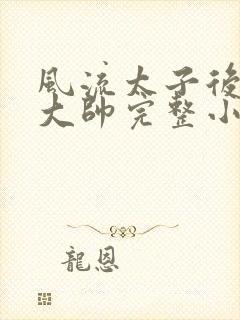 風流太子後
大帥完整小
龍恩